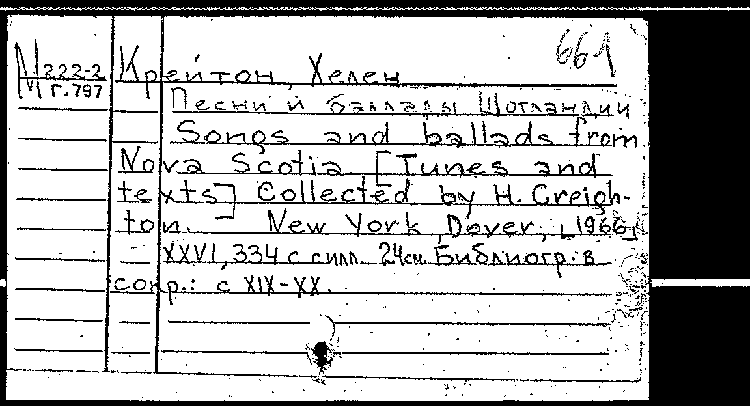 661
М 222-2
г.797
Крейтон, Хелен
Песни и баллады Шотландии
Songs and ballads from
Nova Scotia [Tunes and
texts] Collected by H. Creigh-
ton. New York, Dover, [1966]
XXVI, 334 с илл. 24см. Библиогр. в
сокр.: с XIX-XX.